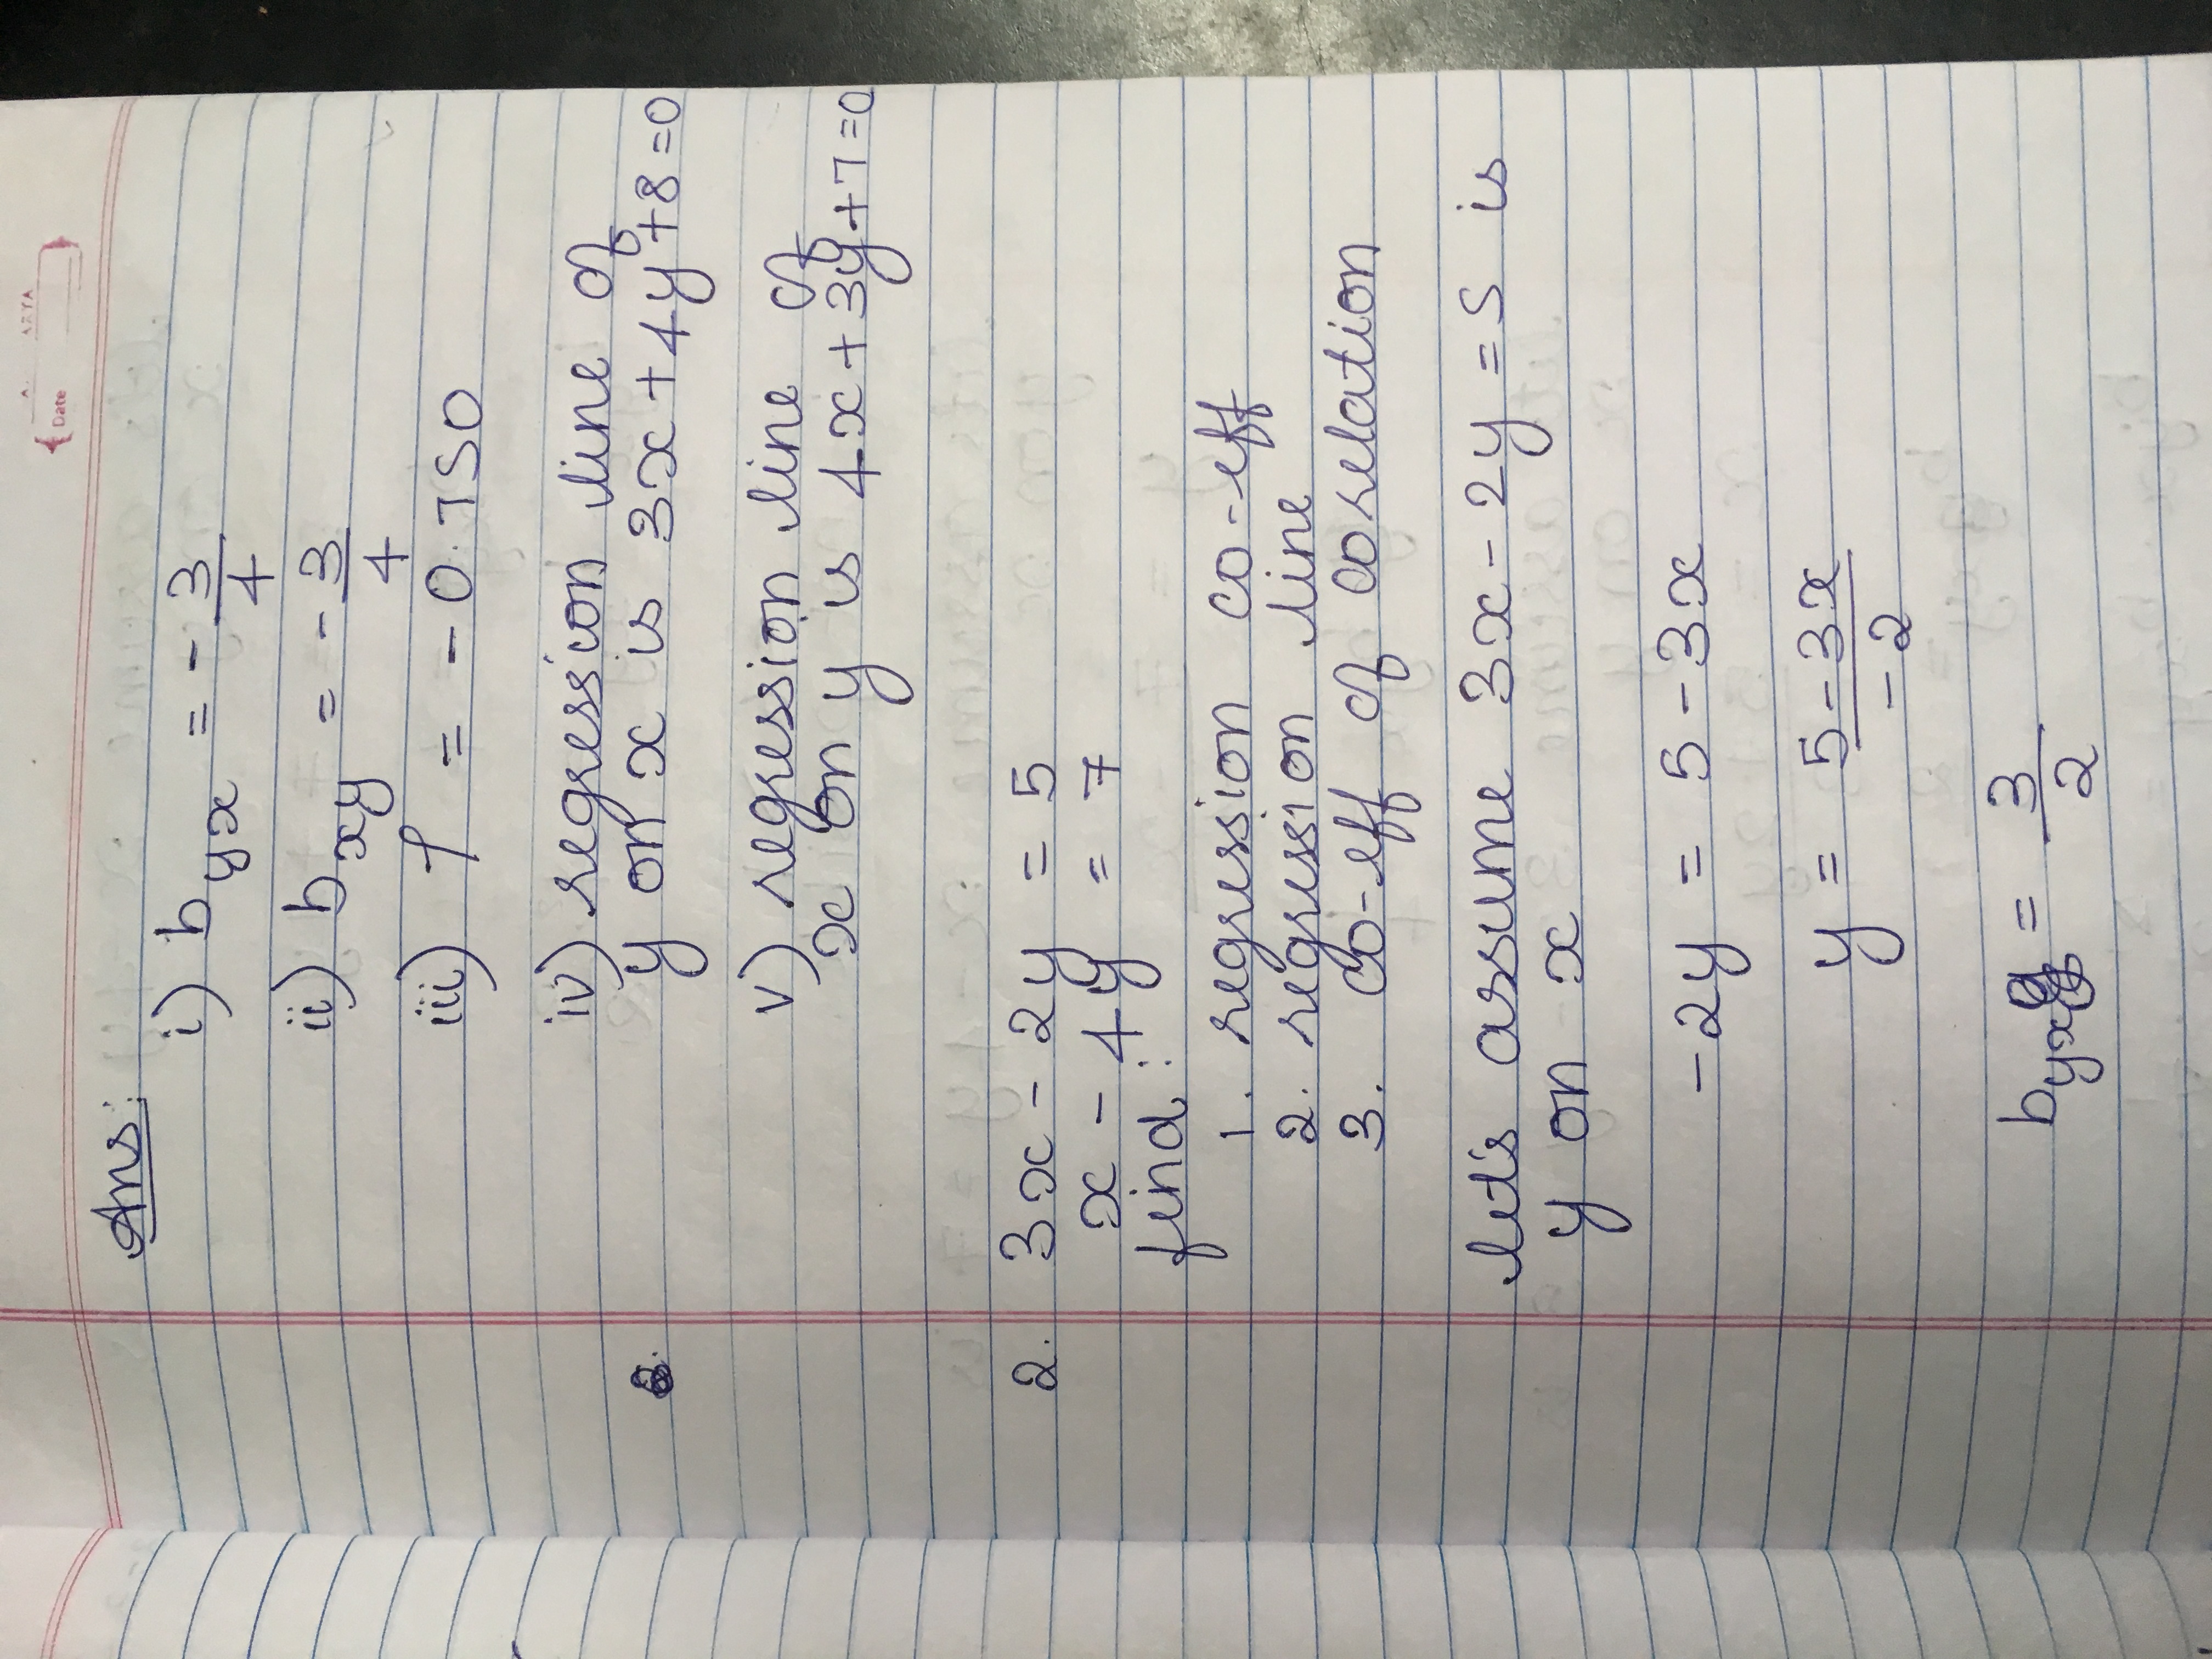 Date
Ans:
i) b_yx = - 3/4
ii) b_xy = - 3/4
iii) r = - 0.750
iv) regression line of
y on x is 3x + 4y + 8 = 0
v) regression line of
x on y is 4x + 3y + 7 = 0
2. 3x - 2y = 5
x - 4y = 7
find:
1. regression co-eff
2. regression line
3. co-eff of corelation
let's assume 3x - 2y = 5 is
y on x
-2y = 5 - 3x
y = (5 - 3x)/-2
b_yx = 3/2